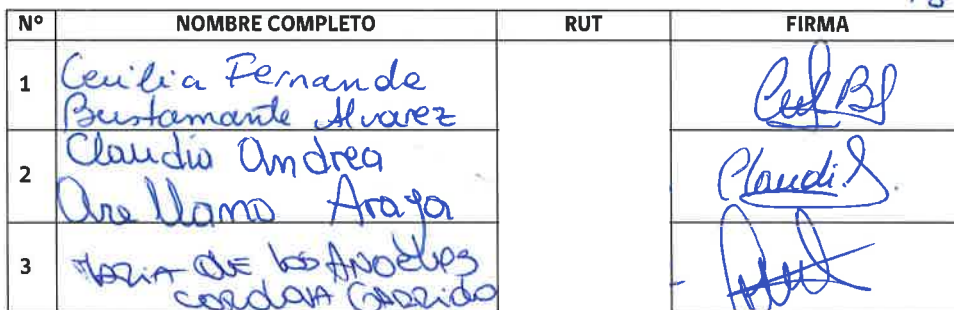 Nº NOMBRE COMPLETO RUT FIRMA
1 Cecilia Fernande
Bustamante Alvarez
2 Claudia Andrea
Arellano Araya
3 MARIA DE LOS ANGELES
CORDOVA GARRIDO
Claudi